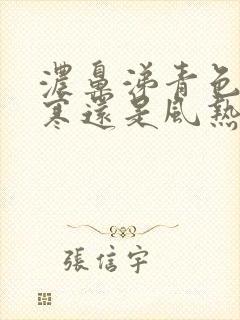 濃鼻涕青色
寒還是風熱
張信宇